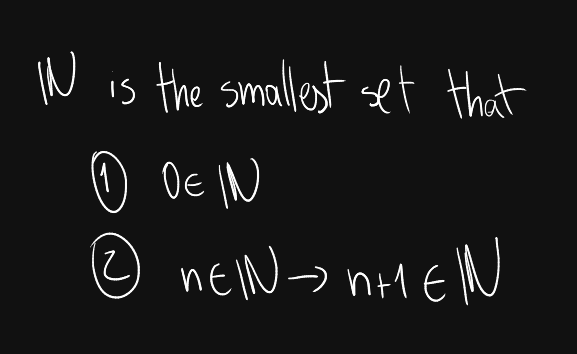 ℕ is the smallest set that
① 0∈ℕ
② n∈ℕ→n+1∈ℕ